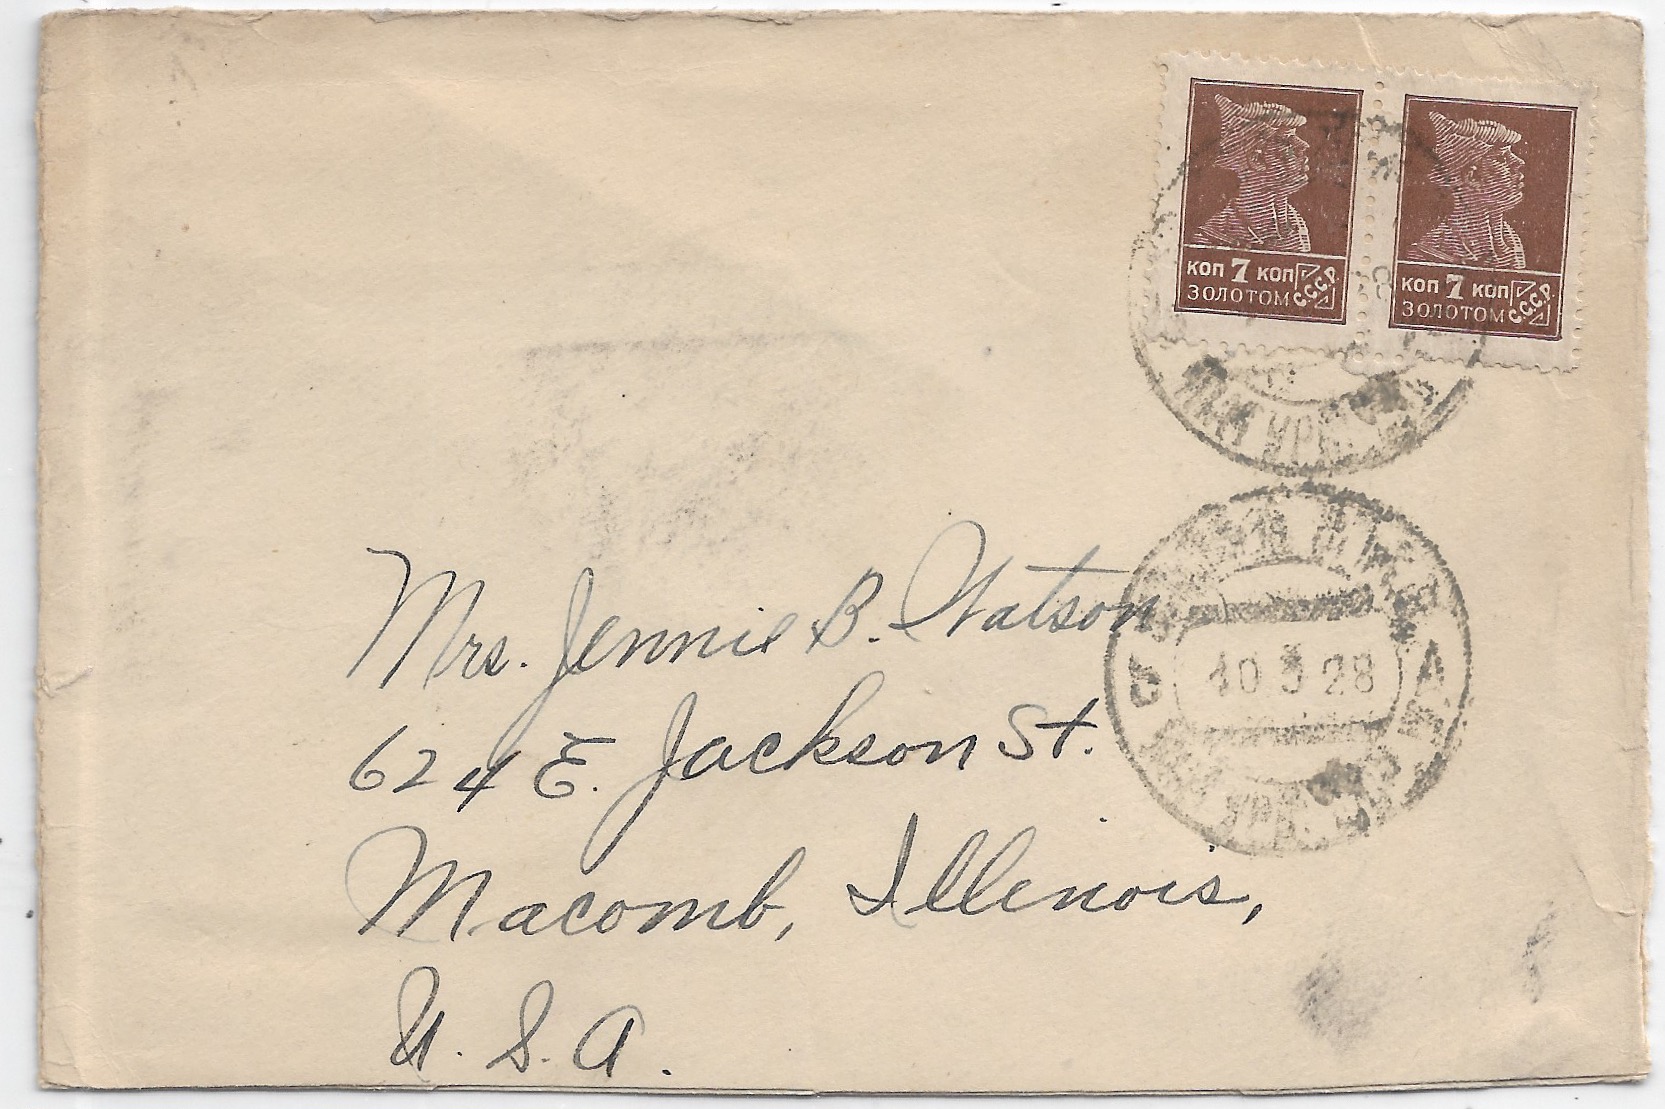 КОП 7 КОП
ЗОЛОТОМ С.С.С.Р.
КОП 7 КОП
ЗОЛОТОМ С.С.С.Р.
10 3 28
Mrs. Jennie B. Watson
624 E. Jackson St.
Macomb, Illinois,
U. S. A.